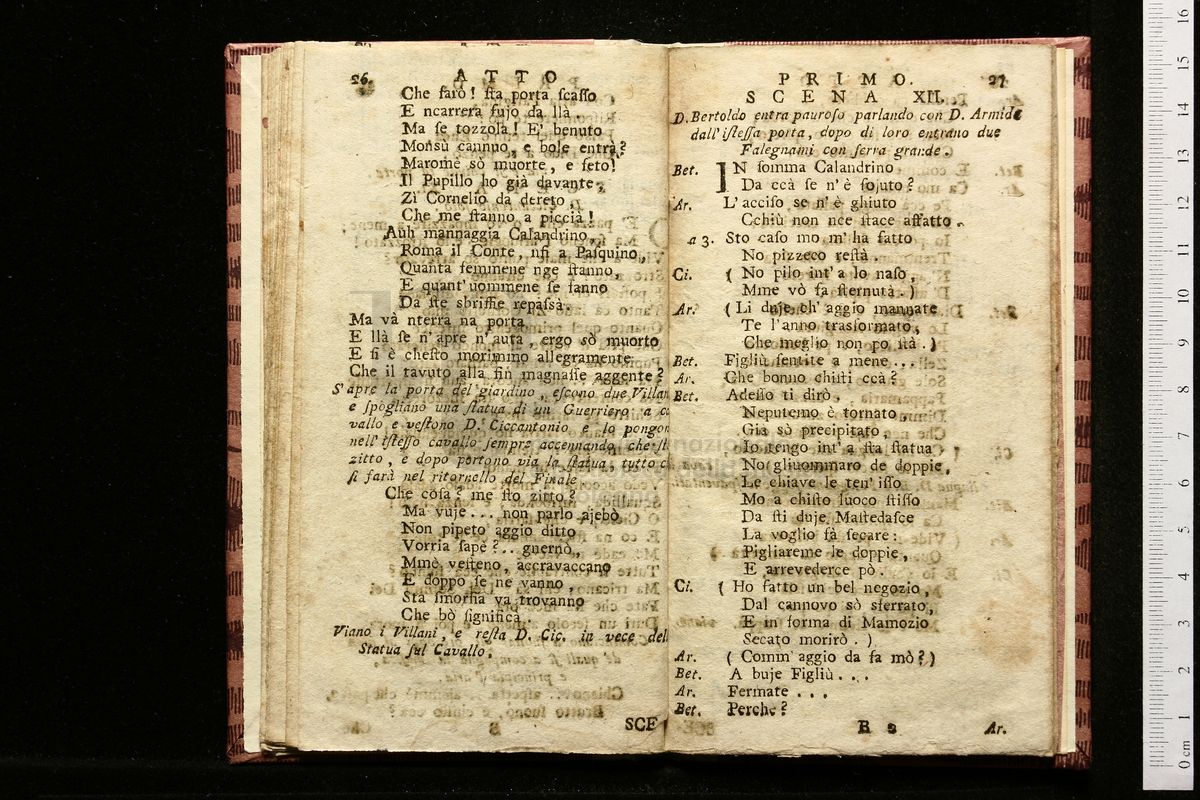 26 ATTO
Che farò! sta porta scasso,
E ncarrera fujo da llà.
Ma se tozzola! E' benuto
Monsù cannuo, e bole entrà?
Marome sò muorte, e seto!
Il Pupillo ho già davante,
Zi Cornelio da dereto,
Che me stanno a piccià!
Auh mannaggia Calandrino,
Roma il Conte, nfi a Pasquino,
Quanta femmene nge stanno,
E quant' uommene se fanno
Da ste sbriffie repassà.
Ma và nterra na porta,
E llà se n'apre n'auta, ergo sò muorto
E si è chesto morimmo allegramente,
Che il tavuto alla fin magnasse aggente?
S'apre la porta del giardino, escono due Villan
e spogliano una statua di un Guerriero, a ca
vallo e vestono D. Ciccantonio e lo pongon
nell'istesso cavallo sempre accennando, che st
zitto, e dopo portono via la statua, tutto c
si farà nel ritornello del Finale
Che cosa? me sto zitto?
Ma vuje... non parlo ajebò
Non pipeto aggio ditto
Vorria sapè?.. guernò,
Mmè vesteno, accravaccano
E doppo se ne vanno,
Sta smorfia va trovanno
Che bò significà.
Viano i Villani, e resta D. Cic. in vece dell
Statua sul Cavallo,
SCE
PRIMO. 27
SCENA XII.
D. Bertoldo entra pauroso parlando con D. Armida
dall'istessa porta, dopo di loro entrano due
Falegnami con serra grande.
Bet. IN somma Calandrino
Da ccà se n'è fojuto?
Ar. L'acciso se n'è ghiuto
Cchiù non nce stace affatto.
a 3. Sto caso mo m'ha fatto
No pizzeco restà.
Ci. ( No pilo int'a lo naso,
Mme vò fa sternutà.)
Ar. ( Li duje ch'aggio mannate
Te l'anno trasformato,
Che meglio non po stà.)
Bet. Figliù sentite a mene...
Ar. Che bonno chisti ccà?
Bet. Adesso ti dirò,
Neputemo è tornato
Già sò precipitato,
Io tengo int'a sta statua
No gliuommaro de doppie,
Le chiave le ten'isso
Mo a chisto luoco stisso
Da sti duje Mastedasce
La voglio fà secare:
Pigliareme le doppie,
E arrevederce pò.
Ci. ( Ho fatto un bel negozio,
Dal cannovo sò sferrato,
E in forma di Mamozio
Secato morirò.)
Ar. ( Comm'aggio da fa mò?)
Bet. A buje Figliù...
Ar. Fermate...
Bet. Perche?
B 2 Ar.